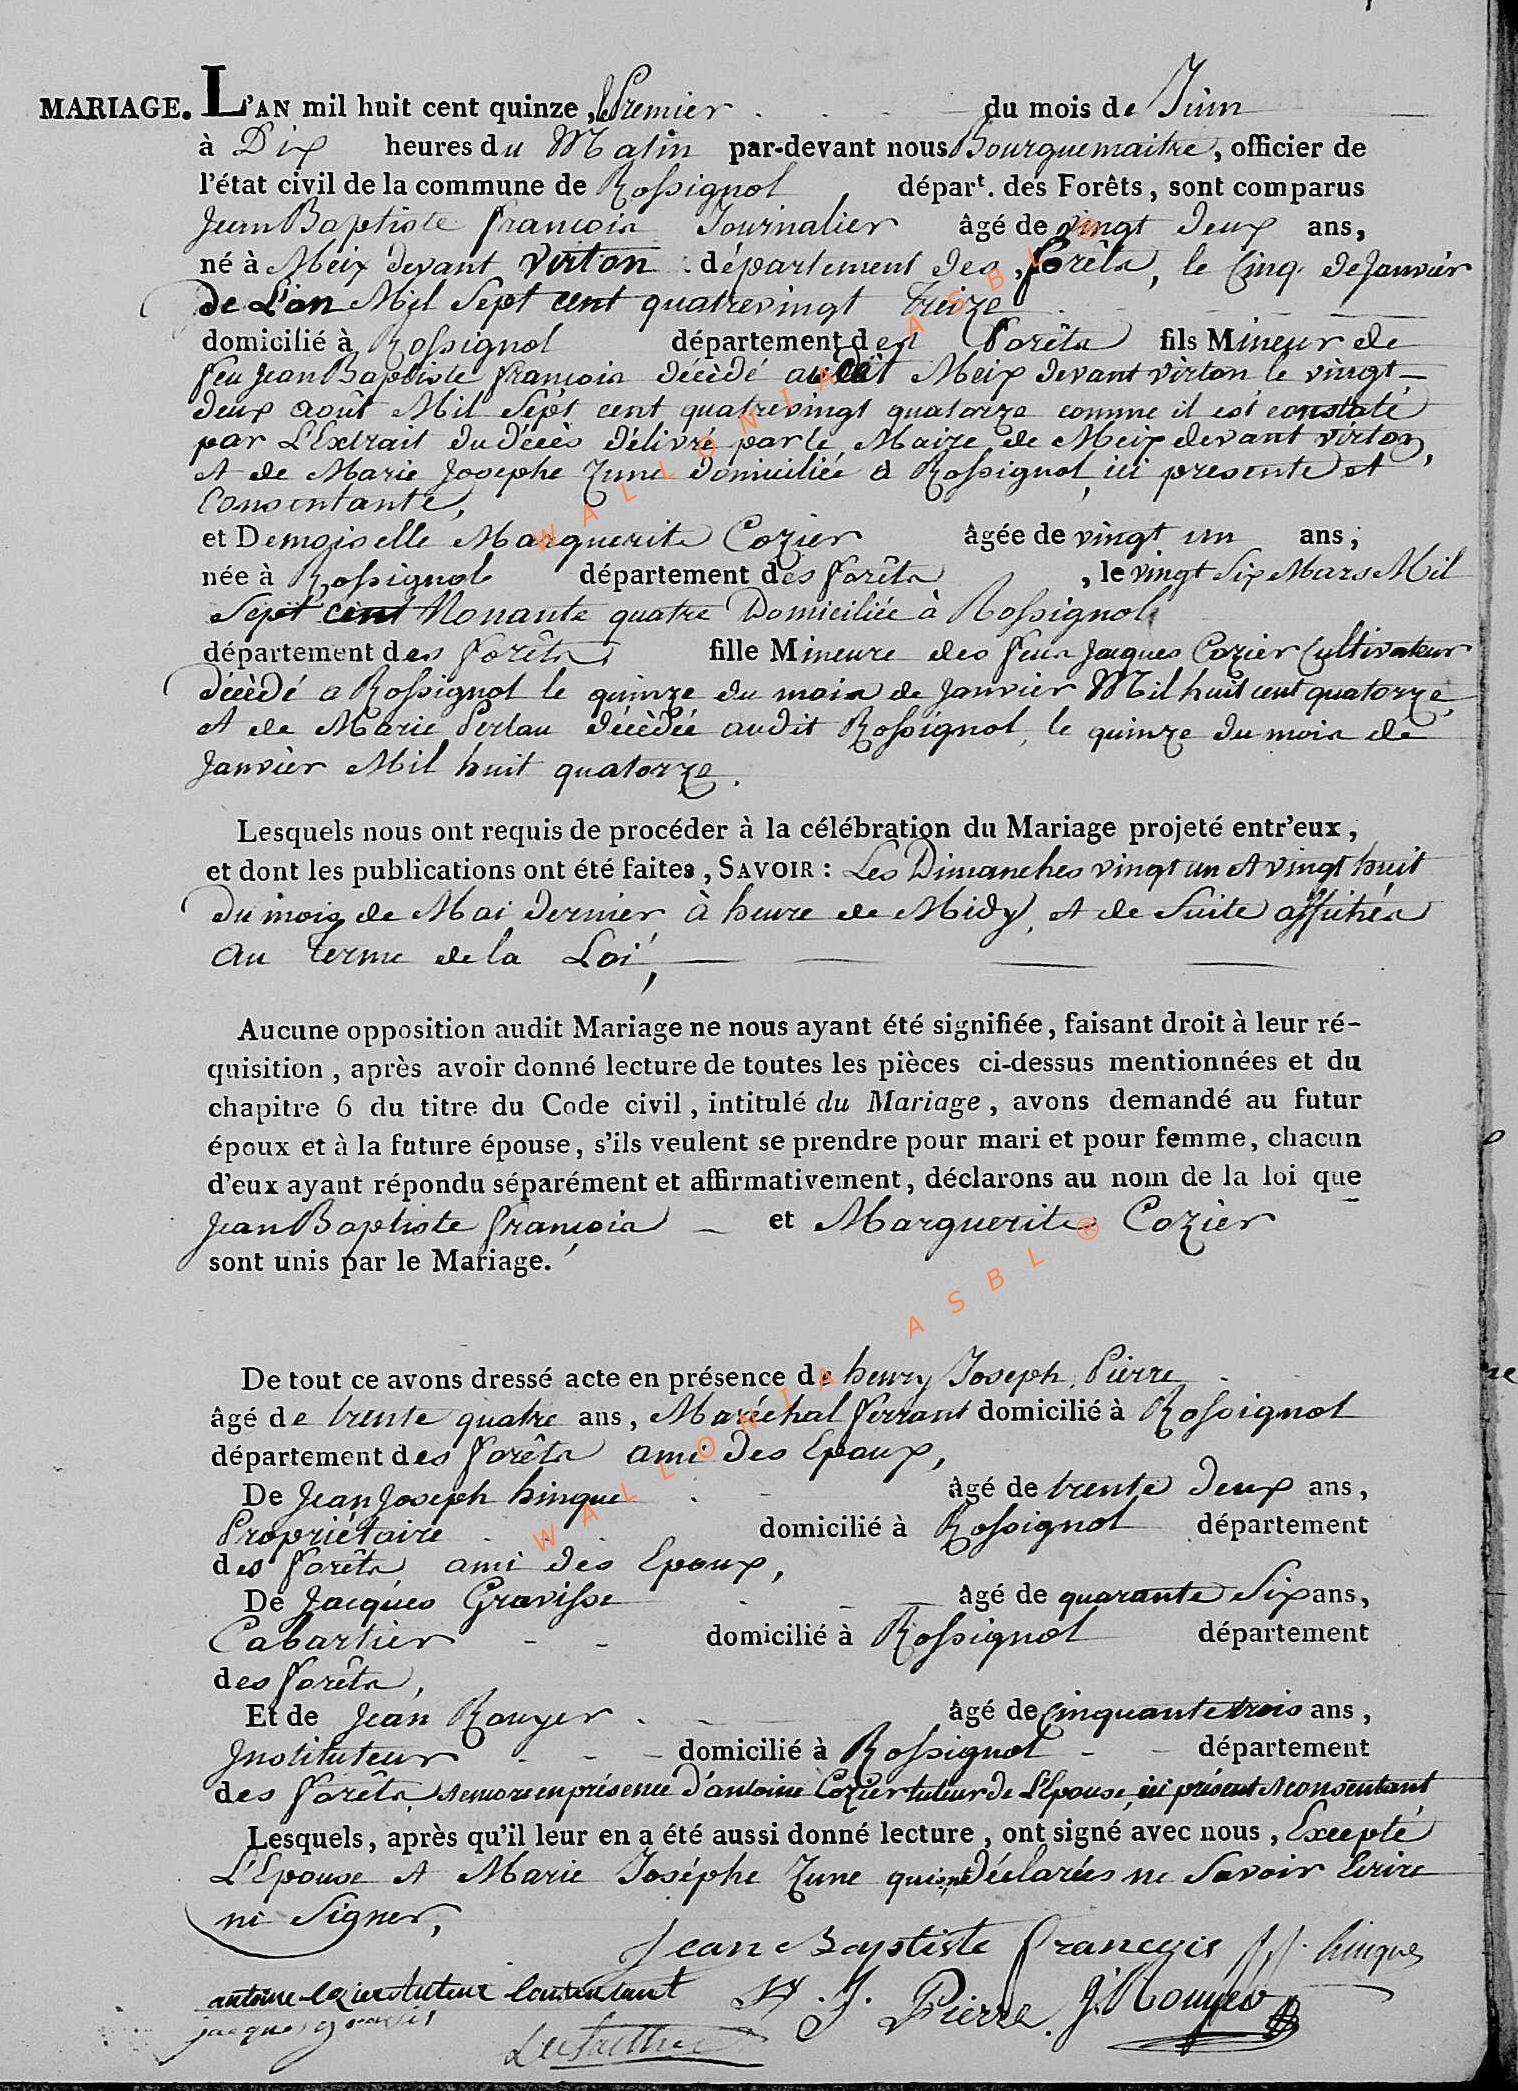 MARIAGE. L'AN mil huit cent quinze, le Premier du mois de Juin
à Dix heures du Matin par-devant nous Bourguemaitre, officier de
l'état civil de la commune de Rossignol départ. des Forêts, sont comparus
Jean Baptiste François Journalier âgé de vingt deux ans,
né à Meix devant Virton département des forêts, le Cinq de Janvier
de L'an Mil Sept cent quatrevingt treize
domicilié à Rossignol département des Forêts fils Mineur de
feu Jean Baptiste François décèdé audit Meix devant virton le vingt
deux août Mil Sept cent quatrevingt quatorze comme il est constaté
par L'Extrait du décès délivré par le Maire de Meix devant virton,
et de Marie Josephe Zune domiciliée à Rossignol, ici presente et
Consentante,
et Demoiselle Marguerite Cozier âgée de vingt un ans,
née à Rossignol département des forêts, le vingt Six Mars Mil
Sept cent Nonante quatre Domiciliée à Rossignol
département des forêts fille Mineure des feus Jacques Cozier Cultivateur
décèdé a Rossignol le quinze du mois de Janvier Mil huit cent quatorze,
et de Marie Perlau décèdée audit Rossignol, le quinze du mois de
Janvier Mil huit quatorze.
Lesquels nous ont requis de procéder à la célébration du Mariage projeté entr'eux,
et dont les publications ont été faites, SAVOIR : Les Dimanches vingt un et vingt huit
du mois de Mai dernier à heure de Midy, et de Suite affichés
au terme de la Loi,
Aucune opposition audit Mariage ne nous ayant été signifiée, faisant droit à leur ré-
quisition, après avoir donné lecture de toutes les pièces ci-dessus mentionnées et du
chapitre 6 du titre du Code civil, intitulé du Mariage, avons demandé au futur
époux et à la future épouse, s'ils veulent se prendre pour mari et pour femme, chacun
d'eux ayant répondu séparément et affirmativement, déclarons au nom de la loi que
Jean Baptiste François et Marguerite Cozier
sont unis par le Mariage.
De tout ce avons dressé acte en présence de henry Joseph Pierre
âgé de trente quatre ans, Maréchal ferrant domicilié à Rossignol
département des forêts ami des Epoux,
De Jean Joseph hinque âgé de trente deux ans,
Propriétaire domicilié à Rossignol département
des forêts ami des Epoux,
De Jacques Gravisse âgé de quarante Six ans,
Cabartier domicilié à Rossignol département
des forêts,
Et de Jean Rouyer âgé de Cinquante trois ans,
Instituteur domicilié à Rossignol département
des forêts, et encore en présence d'antoine Cozier tuteur de L'épouse, ici présent et consentant
Lesquels, après qu'il leur en a été aussi donné lecture, ont signé avec nous, Excepté
L'Epouse et Marie Joséphe Zune qui ont déclarées ne Savoir Ecrire
ni Signer,
Jean Baptiste françois JJ. hinque
antoine cozier tuteur consentant H. J. Pierre J. Rouyer
jacques gravis
WALLONIA ASBL ®
WALLONIA ASBL ®